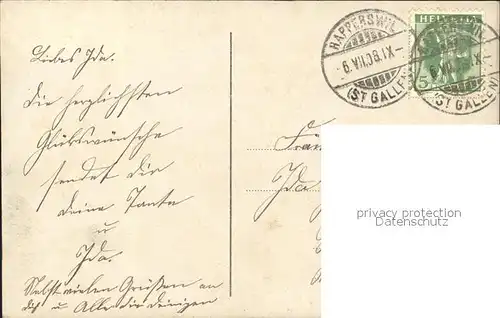 Liebes Ida.
Die herzlichsten
Glückwünsche
sendet dir
deine Tante
u
Ida.
Nebst vielen Grüssen an
dich u Alle die deinigen
RAPPERSWIL
-6.VII.08.IX-
(ST GALLEN)
HELVETIA
5
(ST GALLEN)
Fräu
Ida
privacy protection
Datenschutz